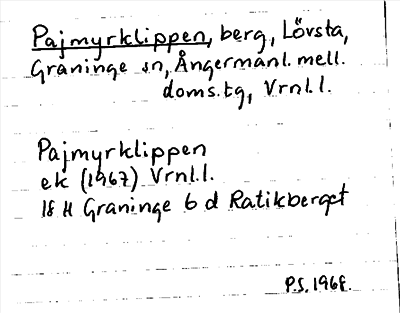 Pajmyrklippen, berg, Lövsta,
Graninge sn, Ångermanl. mell.
doms.tg, Vrnl.l.
Pajmyrklippen
ek (1967) Vrnl.l.
18 H Graninge 6 d Ratikberget
P.S. 1968.